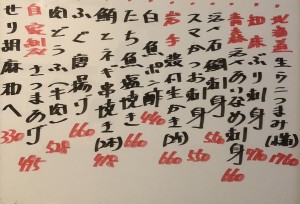 北海道 生ウニつまみ(小箱) 1760
知床 ぶり刺身 970
青森 活〆あいなめ刺身 660
活〆石鯛刺身 550
スマかつお刺身 550
岩手 殻付生かき(1ヶ) 660
白魚ポン酢 440
たち魚塩焼き 660
鮪とネギ串焼き(2本) 418
ふぐ唐揚げ 660
肉どうふ(牛肉) 528
自家製 さつまあげ 495
せり胡麻和へ 330